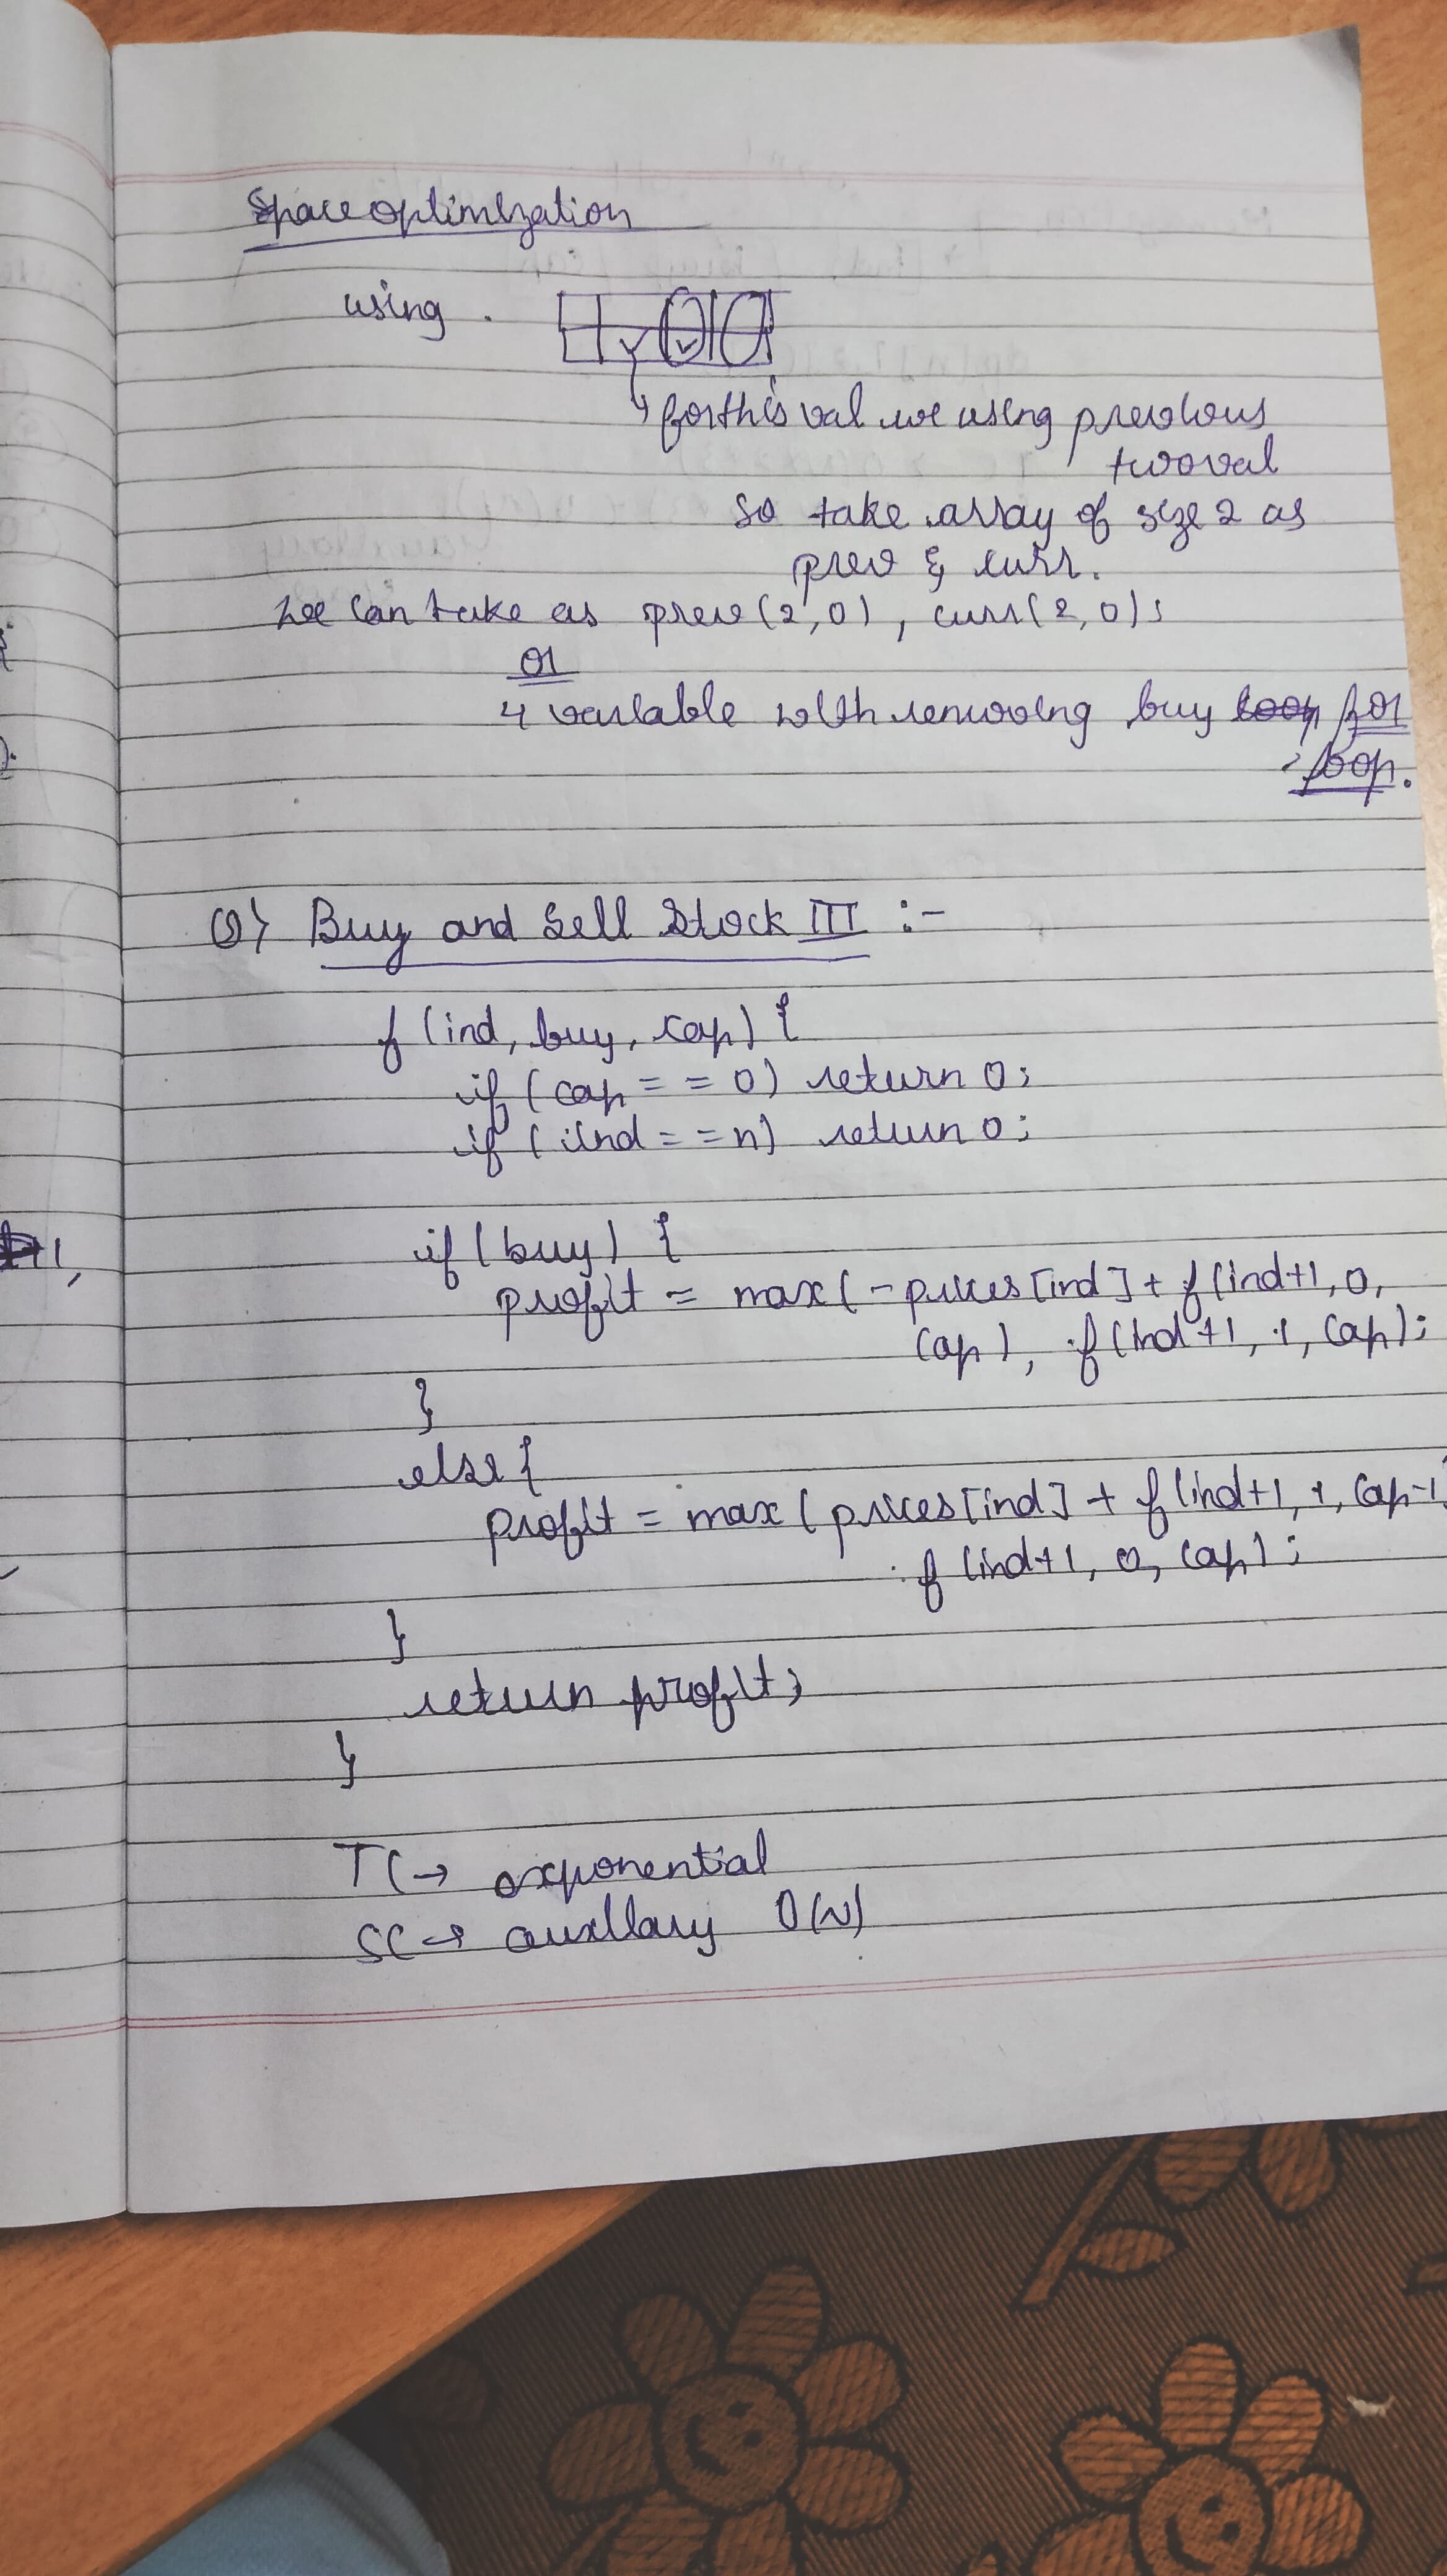 Space optimization
using .
for this val we using previous
two val
so take array of size 2 as
prev & curr.
We can take as prev(2,0), curr(2,0);
or
4 variable with removing buy loop for
loop.
Q) Buy and Sell Stock III :-
f (ind, buy, cap) {
if (cap == 0) return 0;
if (ind == n) return 0;
if (buy) {
profit = max(-prices[ind] + f(ind+1, 0,
cap), f(ind+1, 1, cap);
}
else {
profit = max(prices[ind] + f(ind+1, 1, cap-1,
f(ind+1, 0, cap);
}
return profit;
}
TC → exponential
SC → auxllary O(N)
+1,